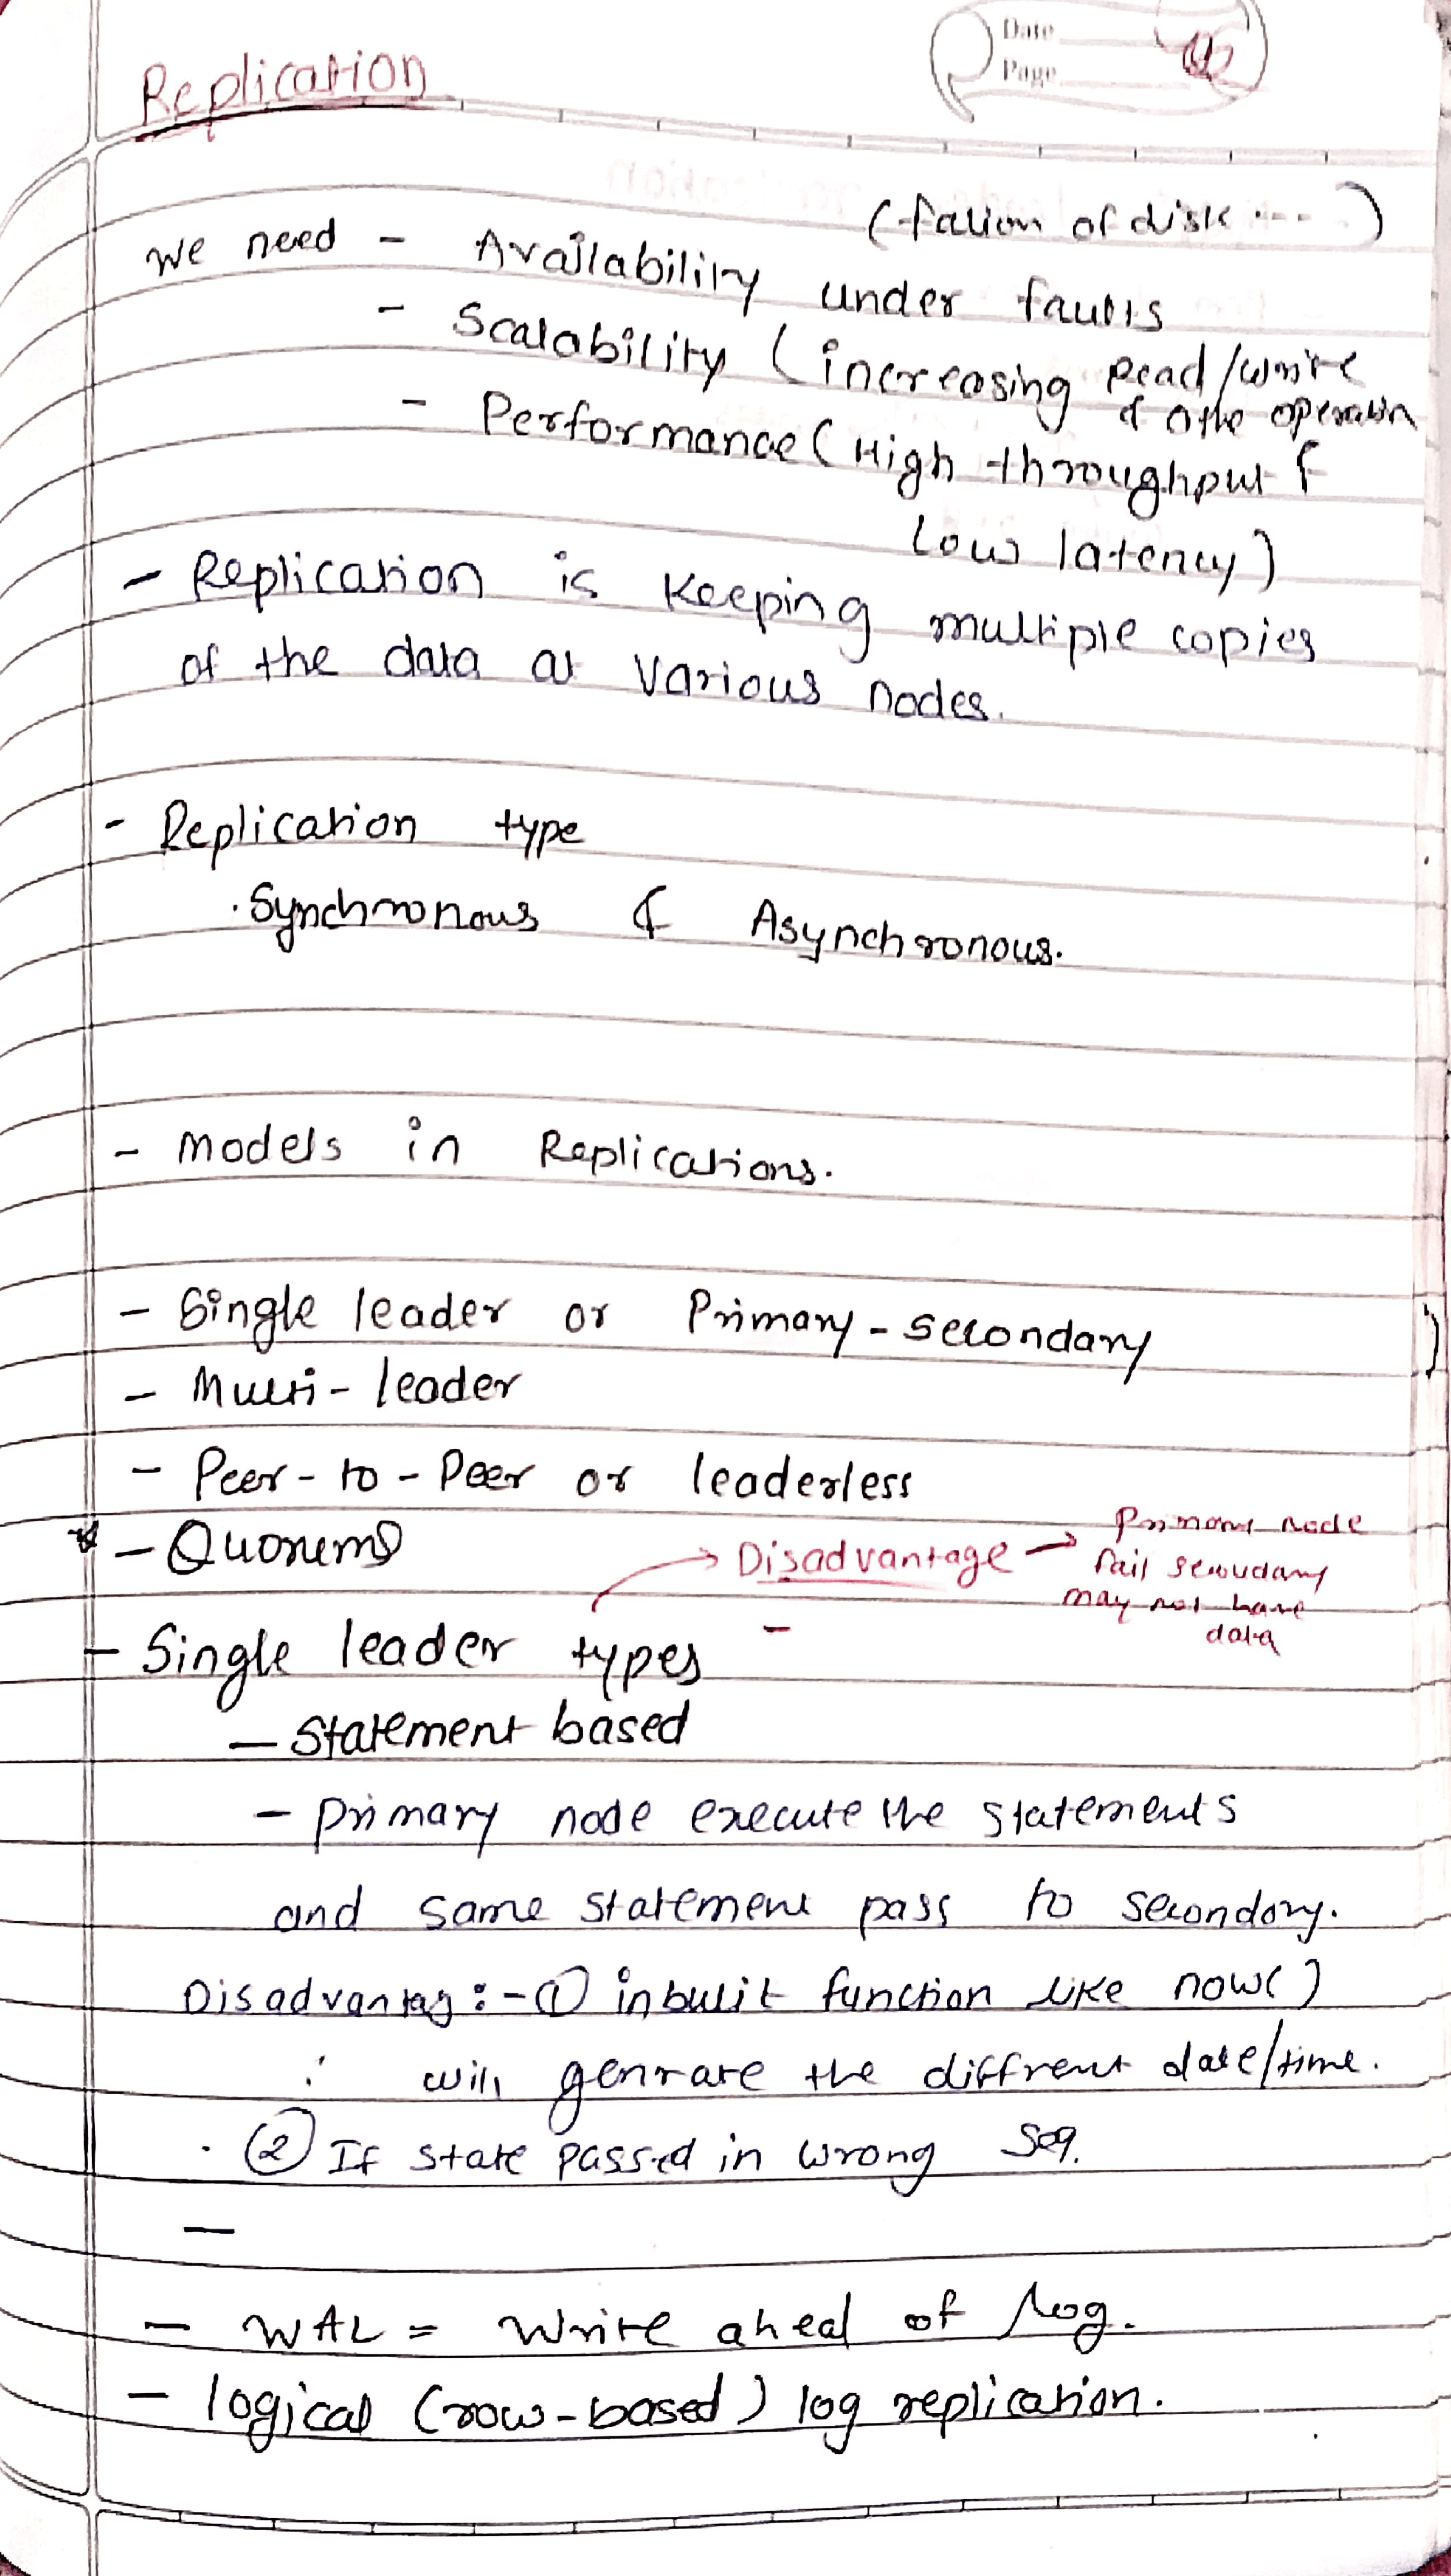 Date
Page
Replication
(failion of disk ....)
We need - Availability under faults
- Scalability (increasing Read/write
& othe operation
- Performance (High throughput &
Low latency)
- Replication is keeping multiple copies
of the data at various nodes.
- Replication type
. Synchronous & Asynchronous.
- Models in Replications.
- Single leader or Primary-secondary
- Multi-leader
- Peer-to-Peer or leaderless
* - Quorems
→ Disadvantage → Primary node
fail secoudany
may not have
data
- Single leader types -
- Statement based
- Primary node execute the statements
and same statement pass to secondory.
Disadvantag :- ① inbulit function like now()
will genrate the diffrent date/time.
. ② If state passed in wrong seq.
-
- WAL = Write ahead of log.
- logical (row-based) log replication.